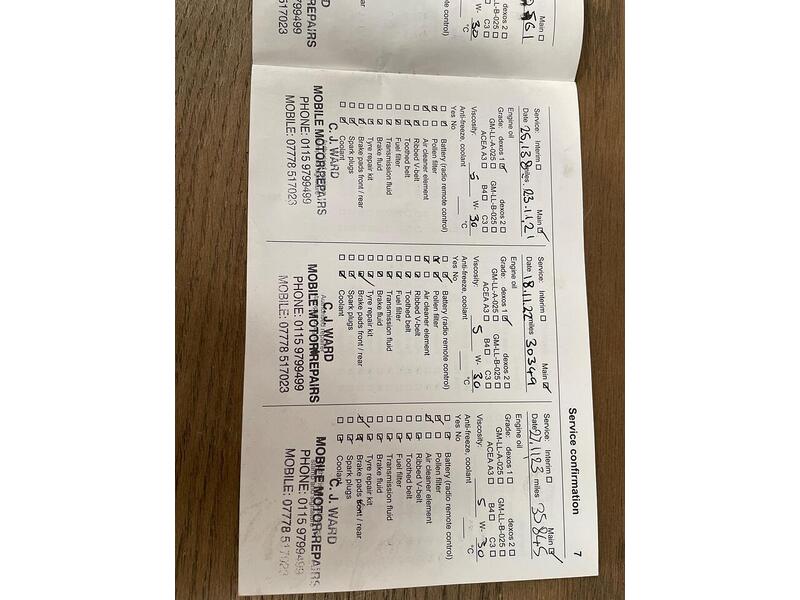 2561
Main ☐
dexos 2 ☐
GM-LL-B-025 ☐
C3 ☐
W- 30
°C
radio remote control)
MOTOR REPAIRS
9799499
517023
Service confirmation 7
Service: Interim ☐ Main ☑
Date 25,138 miles 23.11.21
Engine oil
Grade: dexos 1 ☑ dexos 2 ☐
GM-LL-A-025 ☐ GM-LL-B-025 ☐
ACEA A3 ☐ B4 ☐ C3 ☐
Viscosity: 5 W- 30
Anti-freeze, coolant °C
Yes No
Battery (radio remote control)
Pollen filter
Air cleaner element
Ribbed V-belt
Toothed belt
Fuel filter
Transmission fluid
Brake fluid
Tyre repair kit
Brake pads front / rear
Spark plugs
Coolant
C. J. WARD
MOBILE MOTOR REPAIRS
PHONE: 0115 9799499
MOBILE: 07778 517023
Service: Interim ☐ Main ☑
Date 18.11.22 miles 30349
Engine oil
Grade: dexos 1 ☑ dexos 2 ☐
GM-LL-A-025 ☐ GM-LL-B-025 ☐
ACEA A3 ☐ B4 ☐ C3 ☐
Viscosity: 5 W- 30
Anti-freeze, coolant °C
Yes No
Battery (radio remote control)
Pollen filter
Air cleaner element
Ribbed V-belt
Toothed belt
Fuel filter
Transmission fluid
Brake fluid
Tyre repair kit
Brake pads front / rear
Spark plugs
Coolant
C. J. WARD
MOBILE MOTOR REPAIRS
PHONE: 0115 9799499
MOBILE: 07778 517023
Service: Interim ☐ Main ☑
Date miles 35845
Engine oil
Grade: dexos 1 ☐ dexos 2 ☐
GM-LL-A-025 ☐ GM-LL-B-025 ☐
ACEA A3 ☐ B4 ☐ C3 ☐
Viscosity: 5 W- 30
Anti-freeze, coolant °C
Yes No
Battery (radio remote control)
Pollen filter
Air cleaner element
Ribbed V-belt
Toothed belt
Fuel filter
Transmission fluid
Brake fluid
Tyre repair kit
Brake pads front / rear
Spark plugs
Coolant
C. J. WARD
MOBILE MOTOR REPAIRS
PHONE: 0115 9799499
MOBILE: 07778 517023